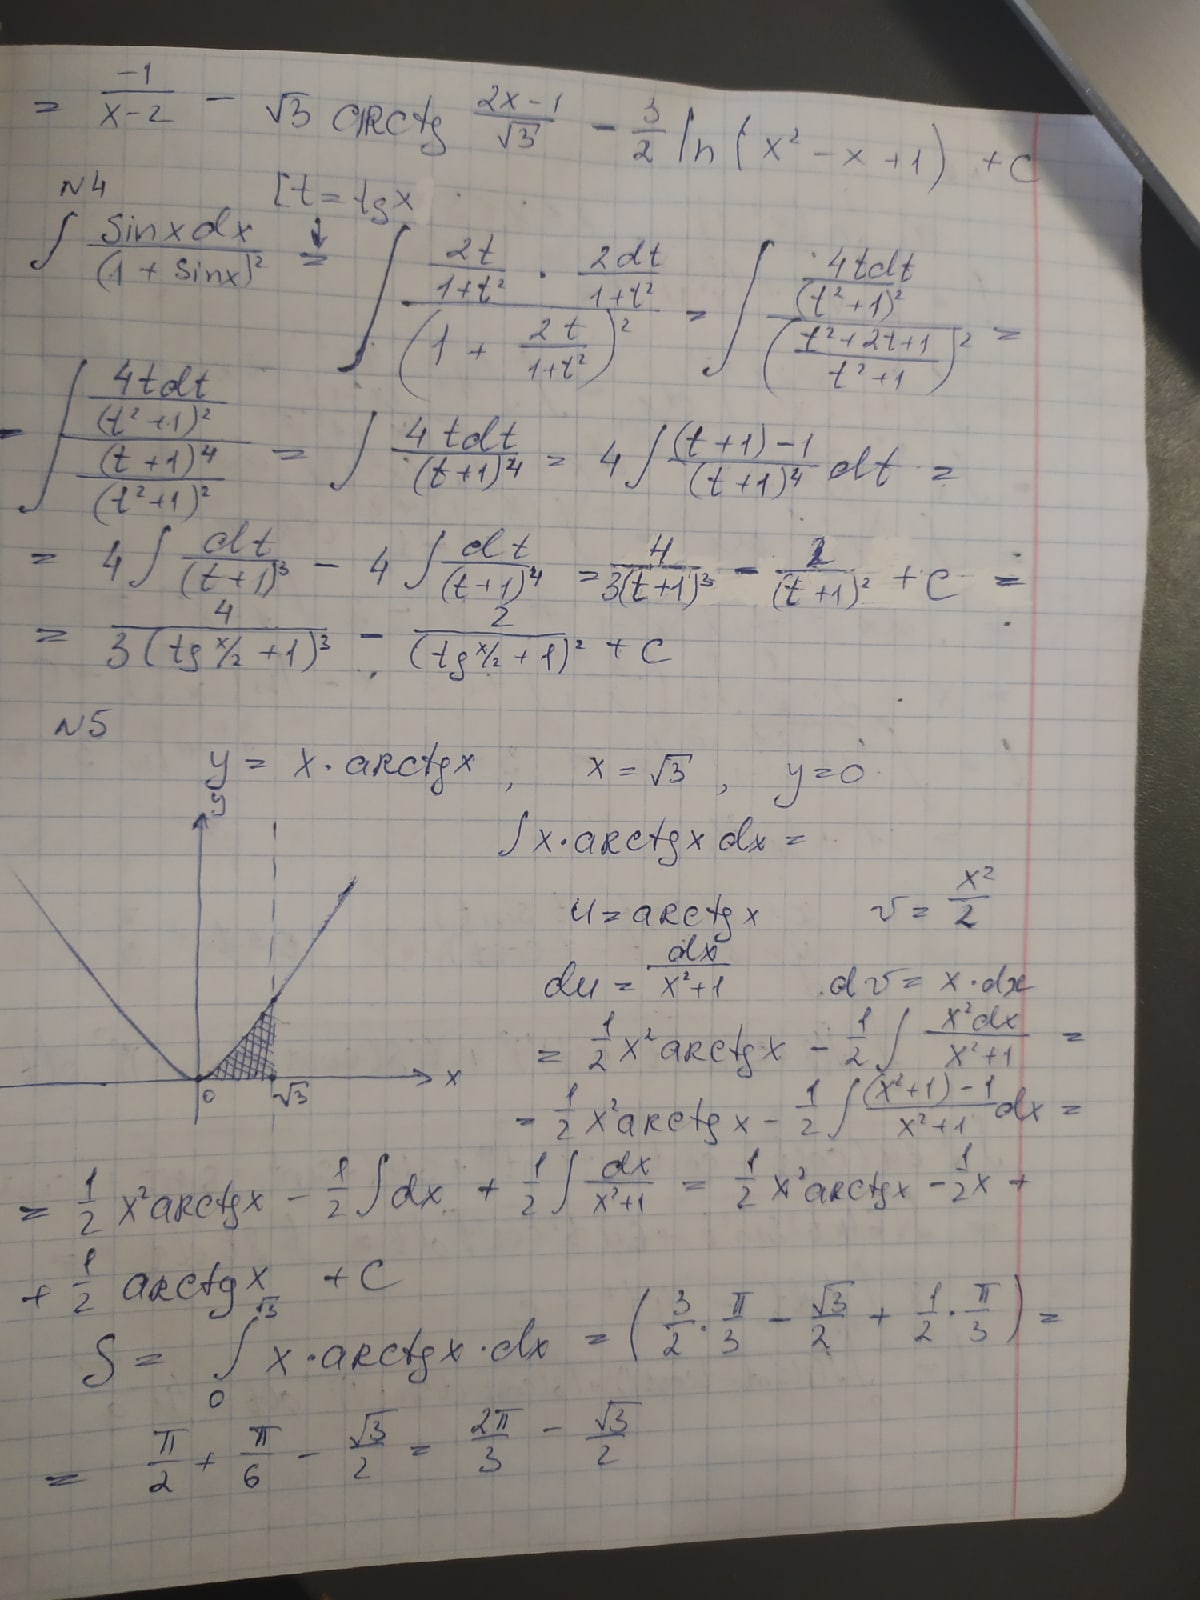 = -1/(x-2) - √3 arctg (2x-1)/√3 - 3/2 ln(x² - x + 1) + C
N4 [t = tg x
∫ sinxdx/(1 + sinx)² = ∫ (2t/(1+t²) · 2dt/(1+t²))/(1 + 2t/(1+t²))² = ∫ (4tdt/(t²+1)²)/((t²+2t+1)/(t²+1))² =
- ∫ (4tdt/(t²+1)²)/((t+1)⁴/(t²+1)²) = ∫ 4tdt/(t+1)⁴ = 4∫ ((t+1)-1)/(t+1)⁴ dt =
= 4∫ dt/(t+1)³ - 4∫ dt/(t+1)⁴ = 4/(3(t+1)³) - 2/(t+1)² + C =
= 4/(3(tg x/2 + 1)³) - 2/(tg x/2 + 1)² + C
N5
y = x · arctgx , x = √3 , y = 0
y
∫x·arctgx dx =
u = arctgx v = x²/2
du = dx/(x²+1) dv = x·dx
= 1/2 x² arctgx - 1/2 ∫ x²dx/(x²+1) =
x
0 √3
= 1/2 x² arctgx - 1/2 ∫ ((x²+1)-1)/(x²+1) dx =
= 1/2 x² arctgx - 1/2 ∫dx + 1/2 ∫ dx/(x²+1) = 1/2 x² arctgx - 1/2 x +
+ 1/2 arctgx + C
S = ∫₀^√3 x·arctgx·dx = (3/2 · π/3 - √3/2 + 1/2 · π/3) =
= π/2 + π/6 - √3/2 = 2π/3 - √3/2